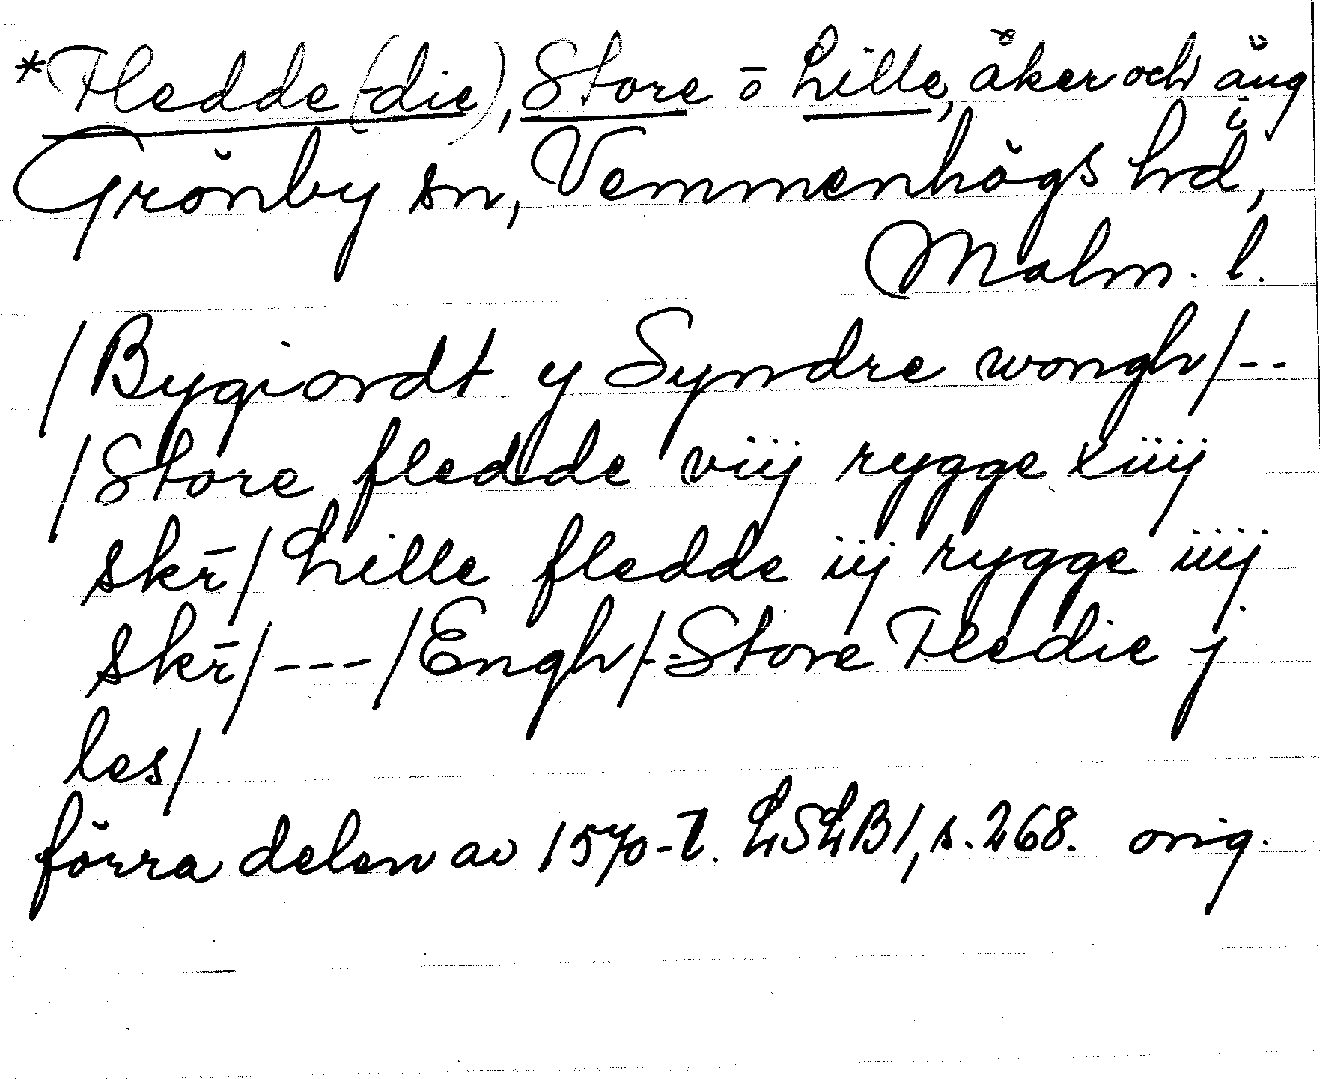 *Fledde (-die), Store o Lille, åker och äng i
Grönby sn, Vemmenhögs hd,
Malm. l.
/Bygiordt y Syndre wongh/--
/Store fledde viij rygge xiiij
skr̄/Lille fledde iij rygge iiij
skr̄/---/Engh/--Store Fledie j
les/
förra delen av 1570-t. LSLB1, s. 268. orig.